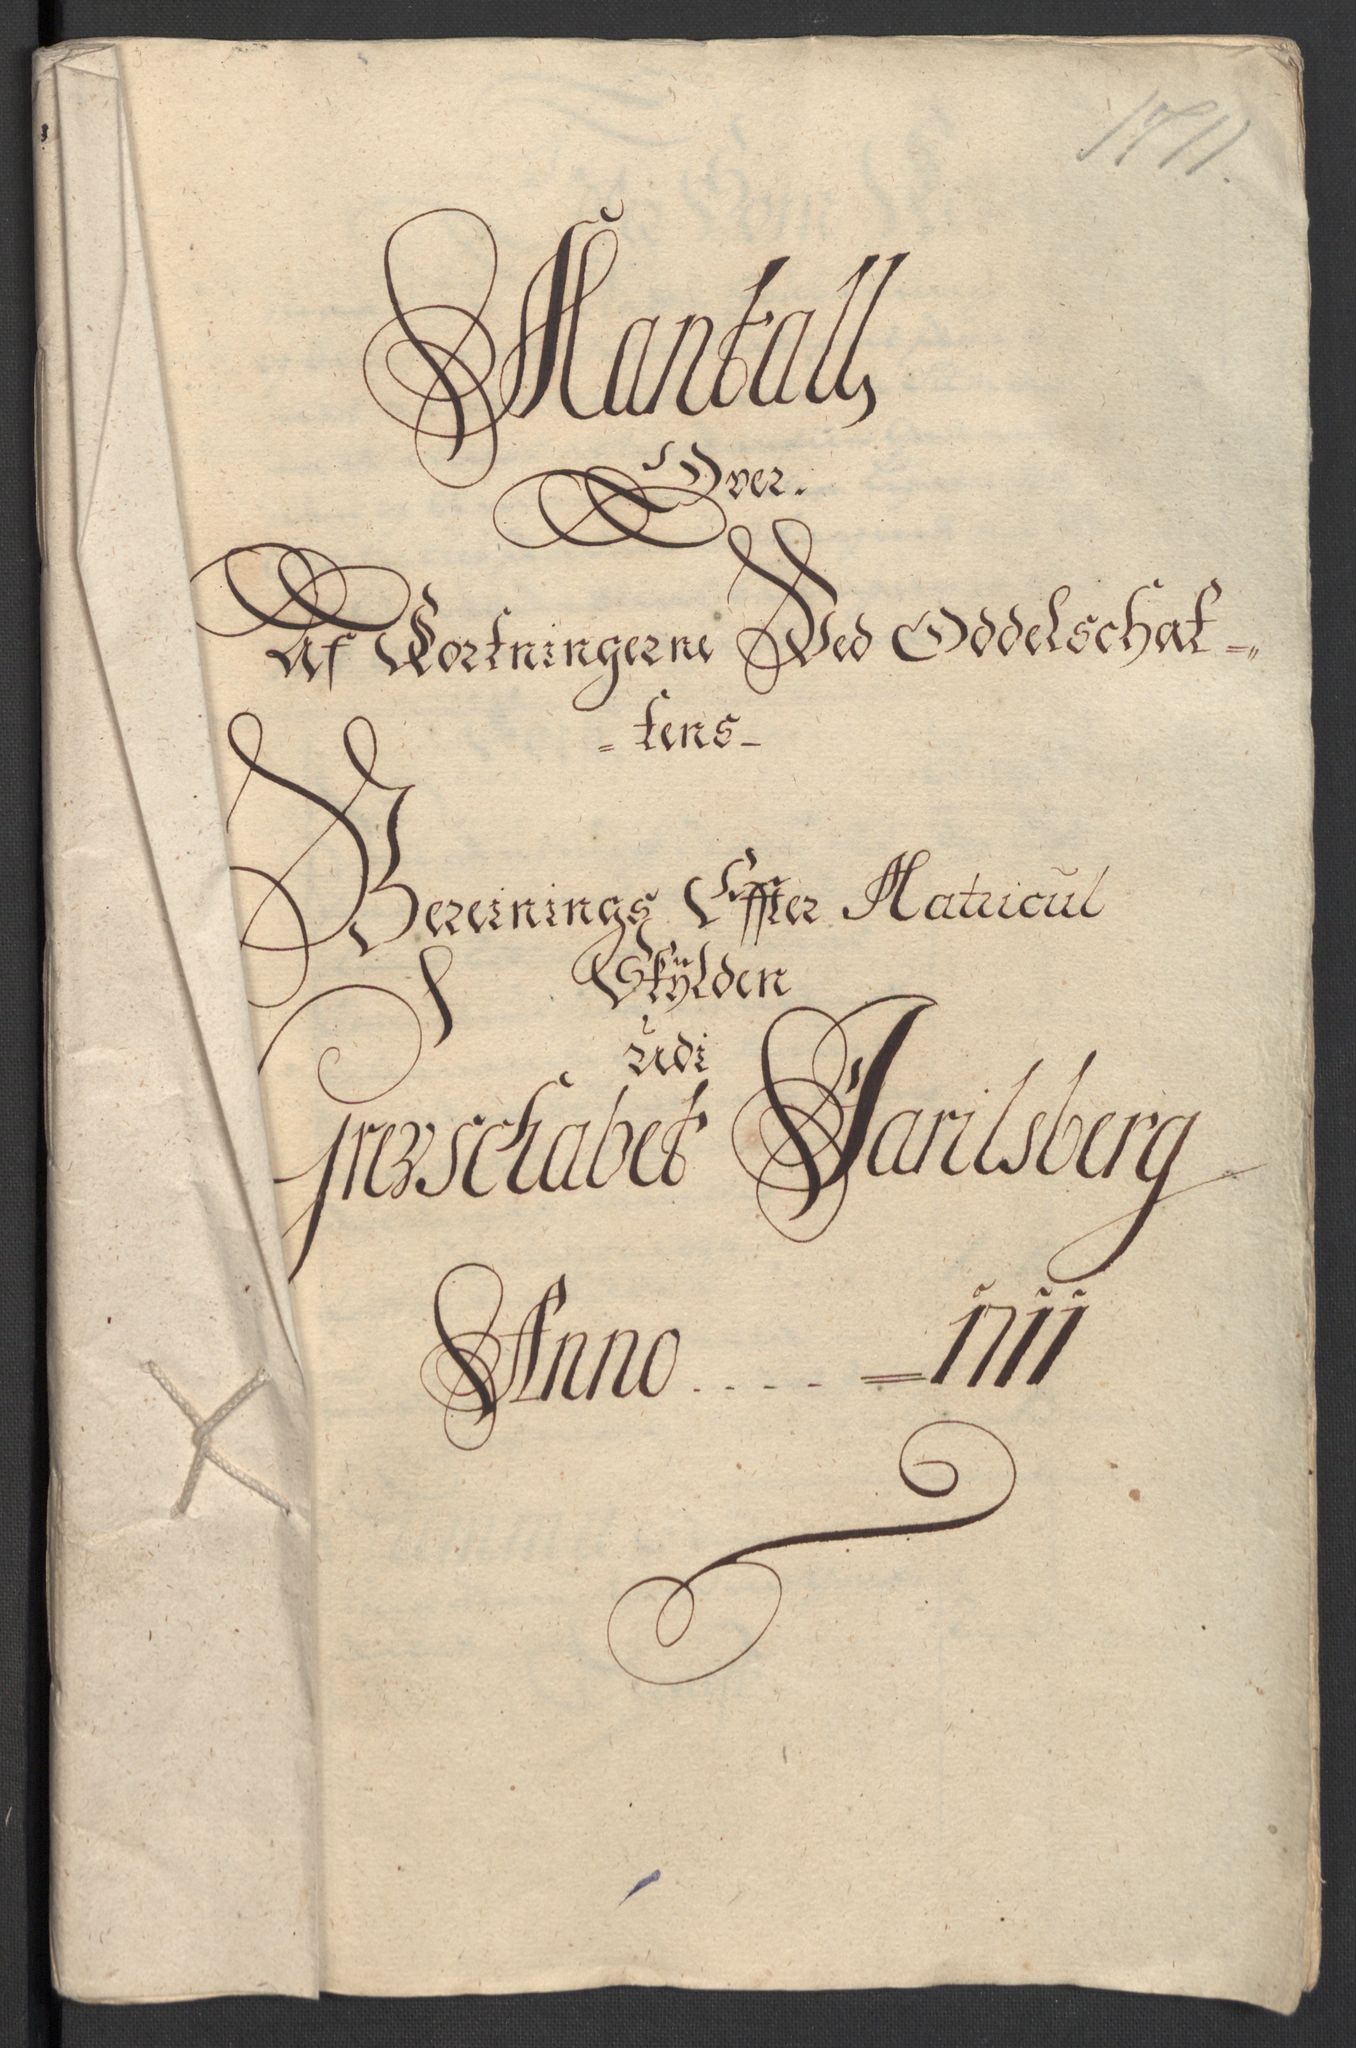 1711.
Mantall,
Over.
Af Kortningerne Ved Oddelschat =
= tens -
Bereinings Effter Matricul
Skÿlden
udi
Grevschabet Jarilsberg
Anno .... = 1711